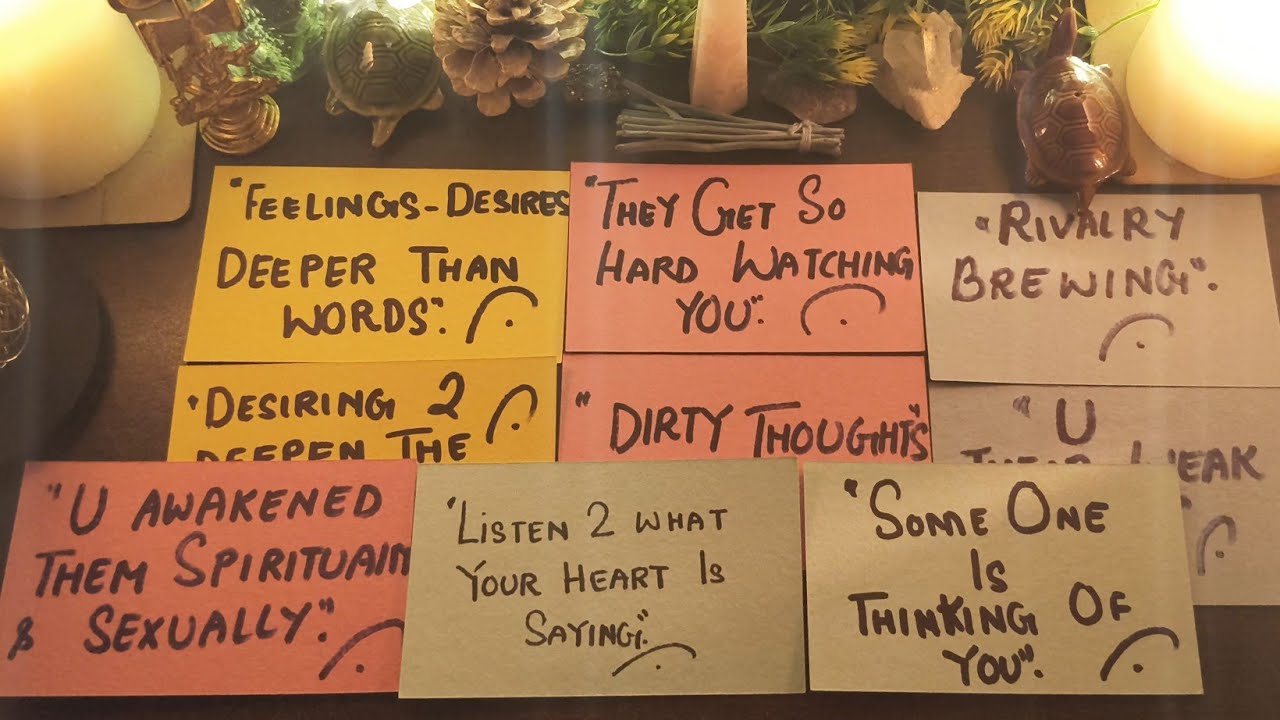 "FEELINGS-DESIRES
DEEPER THAN
WORDS".
"THEY GET SO
HARD WATCHING
YOU".
"RIVALRY
BREWING".
"DESIRING 2
DEEPEN THE
"DIRTY THOUGHTS"
"U
THEIR WEAK
"U AWAKENED
THEM SPIRITUALLY
& SEXUALLY".
"LISTEN 2 WHAT
YOUR HEART IS
SAYING".
"SOME ONE
IS
THINKING OF
YOU".